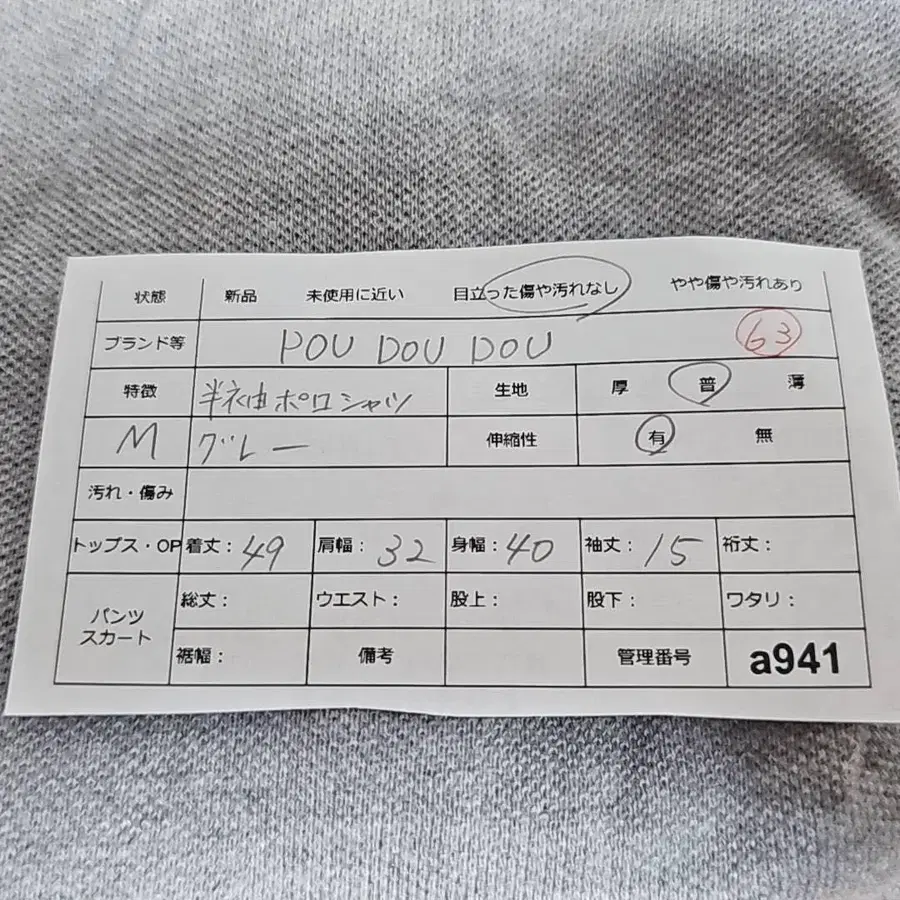 状態 新品 未使用に近い 目立った傷や汚れなし やや傷や汚れあり
ブランド等 POU DOU DOU 63
特徴 半袖ポロシャツ 生地 厚 普 薄
M グレー 伸縮性 有 無
汚れ・傷み
トップス・OP 着丈: 49 肩幅: 32 身幅: 40 袖丈: 15 裄丈:
パンツ
スカート
総丈: ウエスト: 股上: 股下: ワタリ:
裾幅: 備考 管理番号 a941